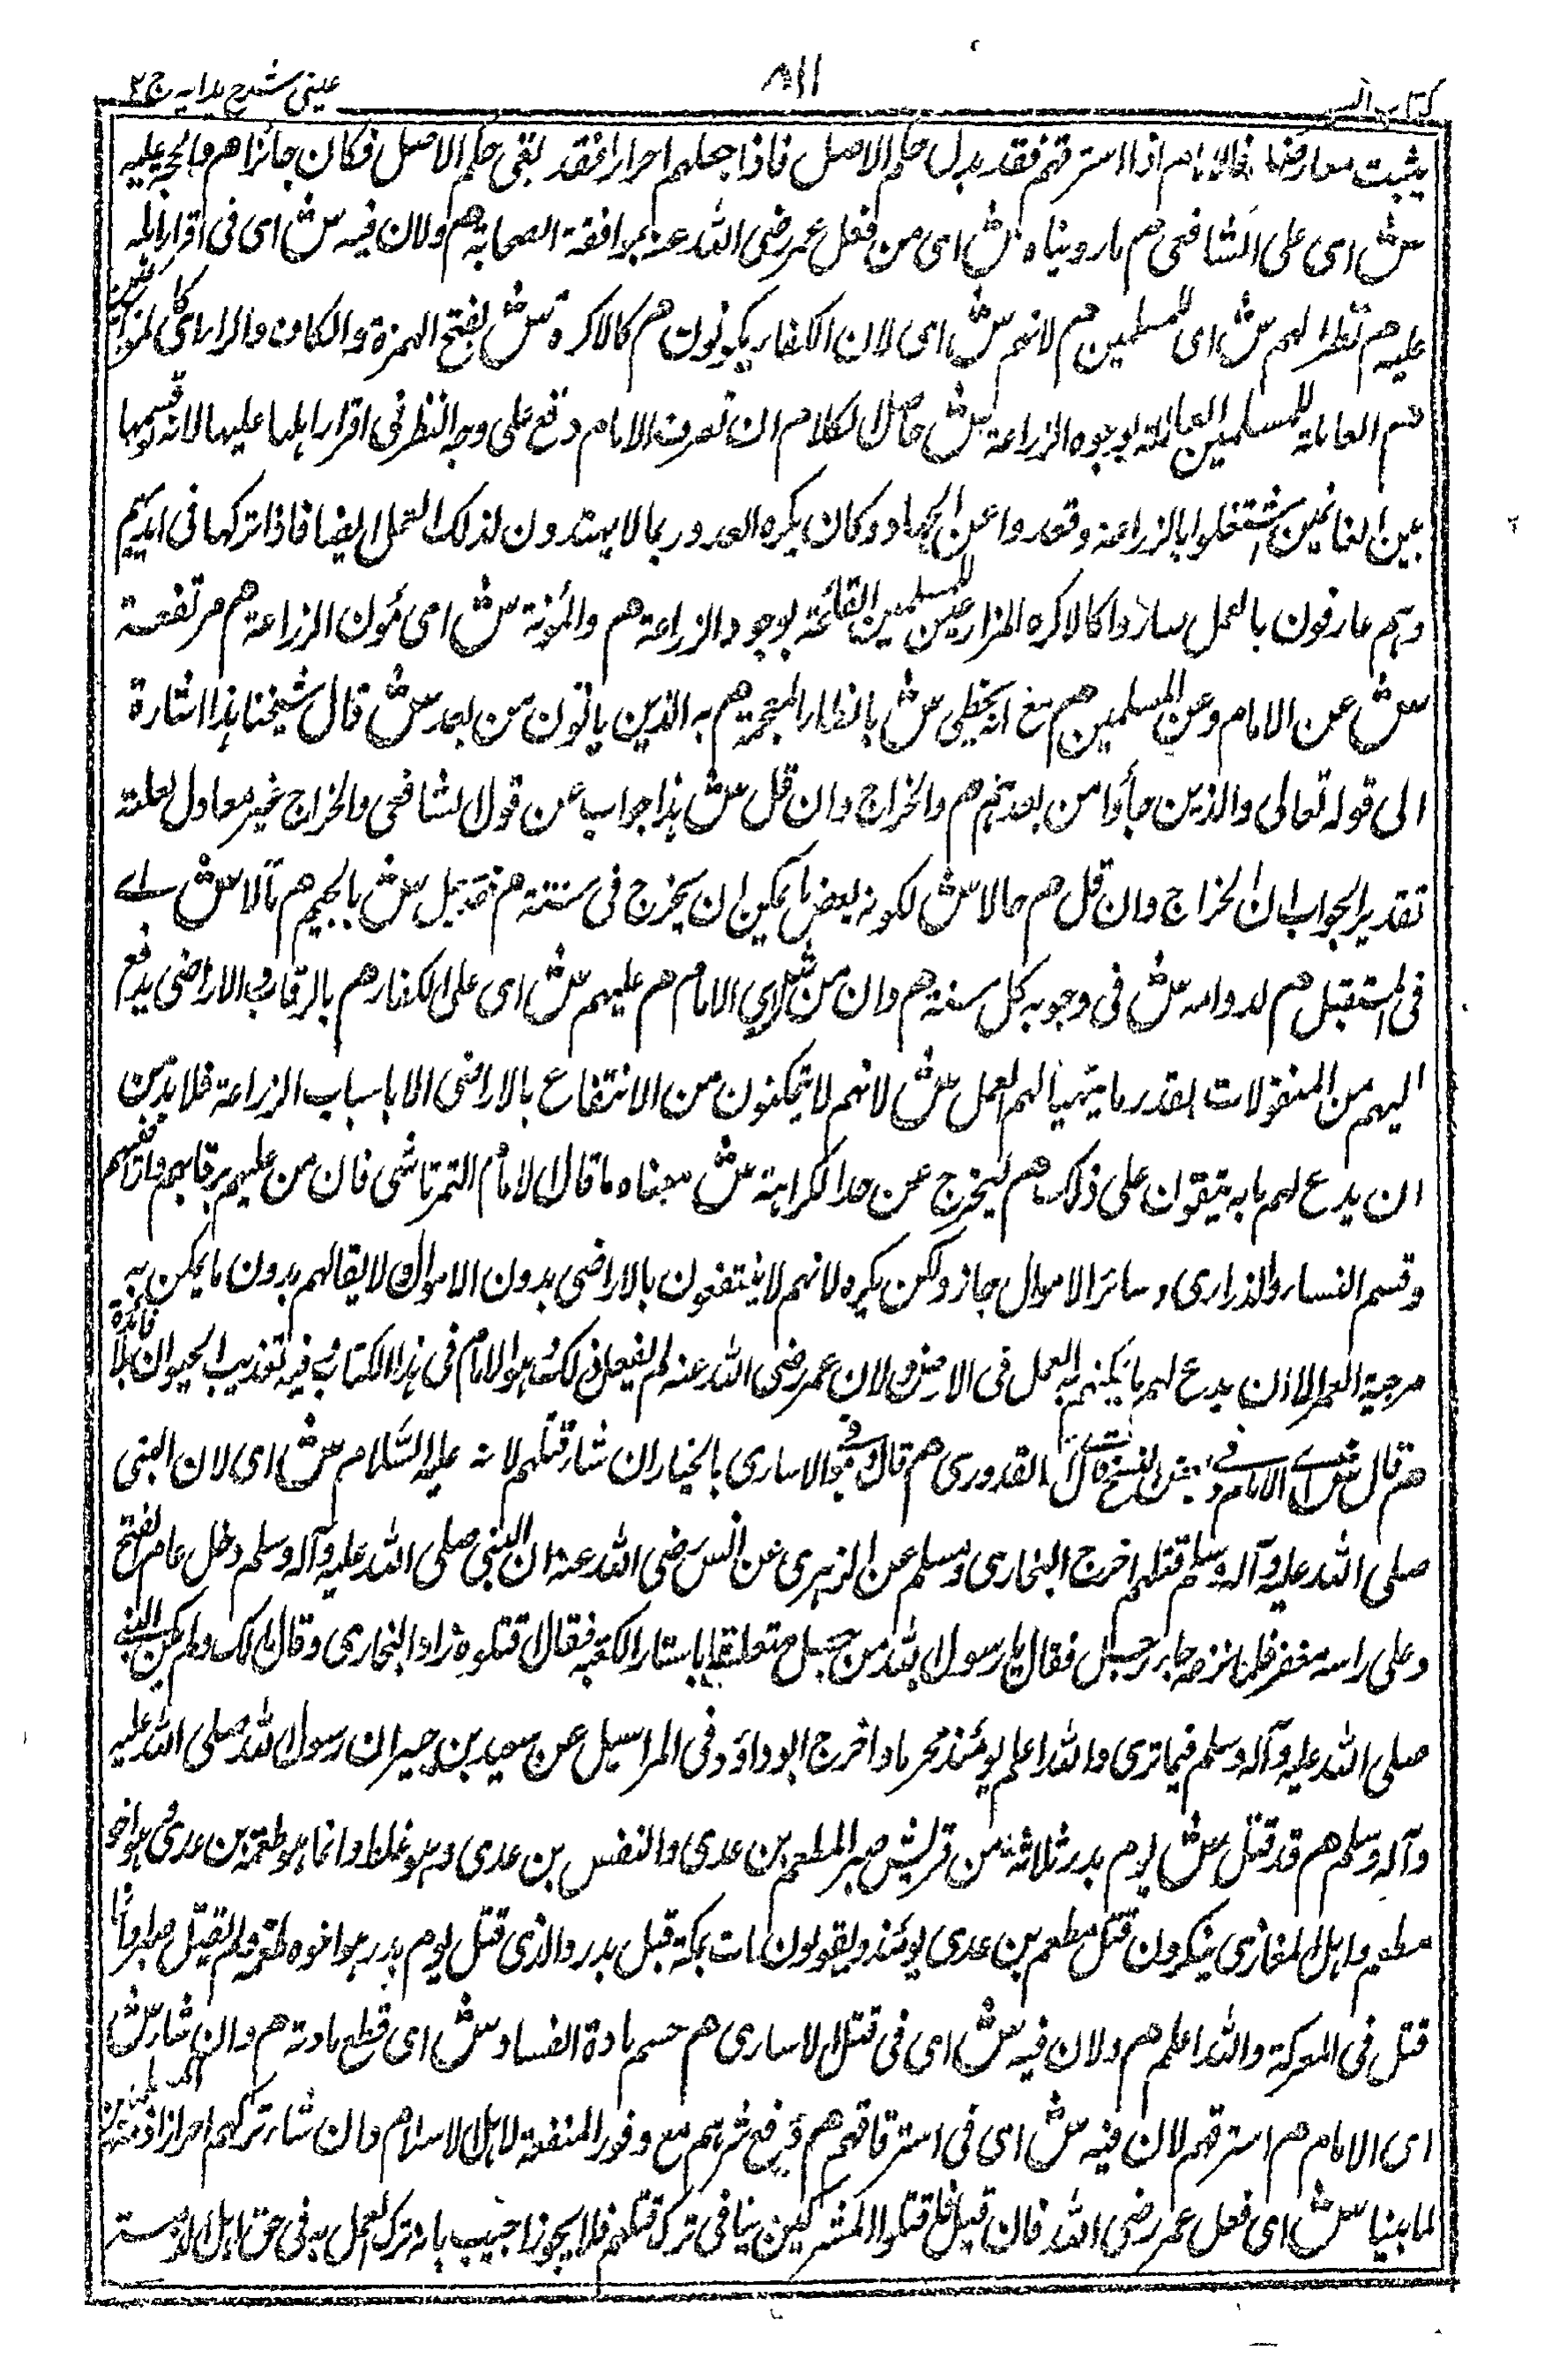 كتاب السير
٨١١
عينى شرح هدايه ج ٢
يثبت معارضا فالامام اذا استرقهم فقد بدل حكم الاصل فاذا جعلهم احرارا فقد بقى حكم الاصل فكان جائزا هم والحجة عليه
ش اى على الشافعى هم ما رويناه ش اى من فعل عمر رضى الله عنه بموافقة الصحابة هم ولان فيه ش اى فى اقرار اهله
عليه هم نظرا لهم ش اى للمسلمين هم لانهم ش اى لان الكفار يكونون هم كالاكرة ش بفتح الهمزة والكاف والراء اى كالمزارعين
هم العاملة للمسلمين العالمة بوجوه الزراعة ش حاصل الكلام ان تصرف الامام وقع على وجه النظر فى اقرار اهلها عليها لانه لو قسمها
بين الغانمين اشتغلوا بالزراعة وقعدوا عن الجهاد وكان يكره العدو ربما لا يهتدون لذلك العمل ايضا فاذا تركها فى ايديهم
وهم عارفون بالعمل صاروا كالاكرة المزارعين للمسلمين القائمة بوجود الزراعة هم والمؤنة ش اى مؤن الزراعة هم مرتفعة
ش عن الامام وعن المسلمين هم مع انه يحظى ش بالظاء المعجمة هم به الذين ياتون من بعد ش قال شيخنا هذا اشارة
الى قوله تعالى والذين جاؤا من بعدهم هم والخراج وان قل ش هذا جواب عن قول الشافعى والخراج غير معادل لعلته
تقدير الجواب ان الخراج وان قل هم حالا ش لكونه بعض ما يمكن ان يخرج فى سنته هم فقد جل ش بالجيم هم مآلا ش اے
فى المستقبل هم لدوامه ش فى وجوبه كل سنة هم وان من ش اى الامام هم عليهم ش اى على الكفار هم بالرقاب والاراضى يدفع
اليهم من المنقولات بقدر ما يتهيأ لهم العمل ش لانهم لا يتمكنون من الانتفاع بالاراضى الا باسباب الزراعة فلا بد من
ان يدع لهم ما به يتقون على ذلك هم ليخرج عن حد الكراهة ش معناه ما قال الامام التمرتاشى فان من عليهم برقابهم واراضيهم
وقسم النساء والذرارى وسائر الاموال جاز ولكن يكره لانهم لا ينتفعون بالاراضى بدون الاموال ولا بقا لهم بدون ما يمكن به
مرجية العمر الا ان يدع لهم ما يمكنهم به العمل فى الاراضى ولان عمر رضى الله عنه لم يفعل ذلك وهو الامام فى هذا الكتاب وفيه تعذيب الحيوان بلا فائدة
هم قال ش اے الامام وفى بعض النسخ قال القدورى هم قال وهو فى الاسارى بالخيار ان شاء قتلهم لانه عليه السلام ش اى لان النبى
صلى الله عليه وآله وسلم قتلهم اخرج البخارى ومسلم عن الزهرى عن انس رضى الله عنه ان النبى صلى الله عليه وآله وسلم دخل عام الفتح
وعلى راسه مغفر فلما نزعه جاء رجل فقال يا رسول الله من خطل متعلقا باستار الكعبة فقال اقتلوه زاد البخارى وقال مالك ولم يكن النبى
صلى الله عليه وآله وسلم فيما نرى والله اعلم يومئذ محرما واخرج ابو داود فى المراسيل عن سعيد بن جبير ان رسول الله صلى الله عليه
وآله وسلم هم قد قتل ش يوم بدر ثلاثة من قريش صبرا المطعم بن عدى والنفس بن عدى وهو غلط وانما هو طعيمة بن عدى وهو اخو
مطعم واهل المغازى ينكرون قتل مطعم بن عدى يومئذ ويقولون مات بمكة قبل بدر والذى قتل يوم بدر هو اخوه طعيمة ولم يقتل صبرا وانما
قتل فى المعركة والله اعلم هم ولان فيه ش اى فى قتل الاسارى هم حسم مادة الفساد ش اى قطع مادته هم وان شاء ش
اى الامام هم استرقهم لان فيه ش اى فى استرقاقهم هم دفع شرهم مع وفور المنفعة لاهل الاسلام وان شاء تركهم احرارا ذمة للمسلمين
لما بينا ش اى فعل عمر رضى الله فان قيل فاقتلوا المشركين ينافى ترك قتلهم فلا يجوز اجيب بانه ترك العمل به فى حق اهل الذمة